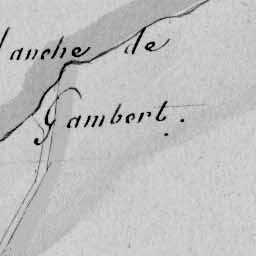 lanche de
Gambert.